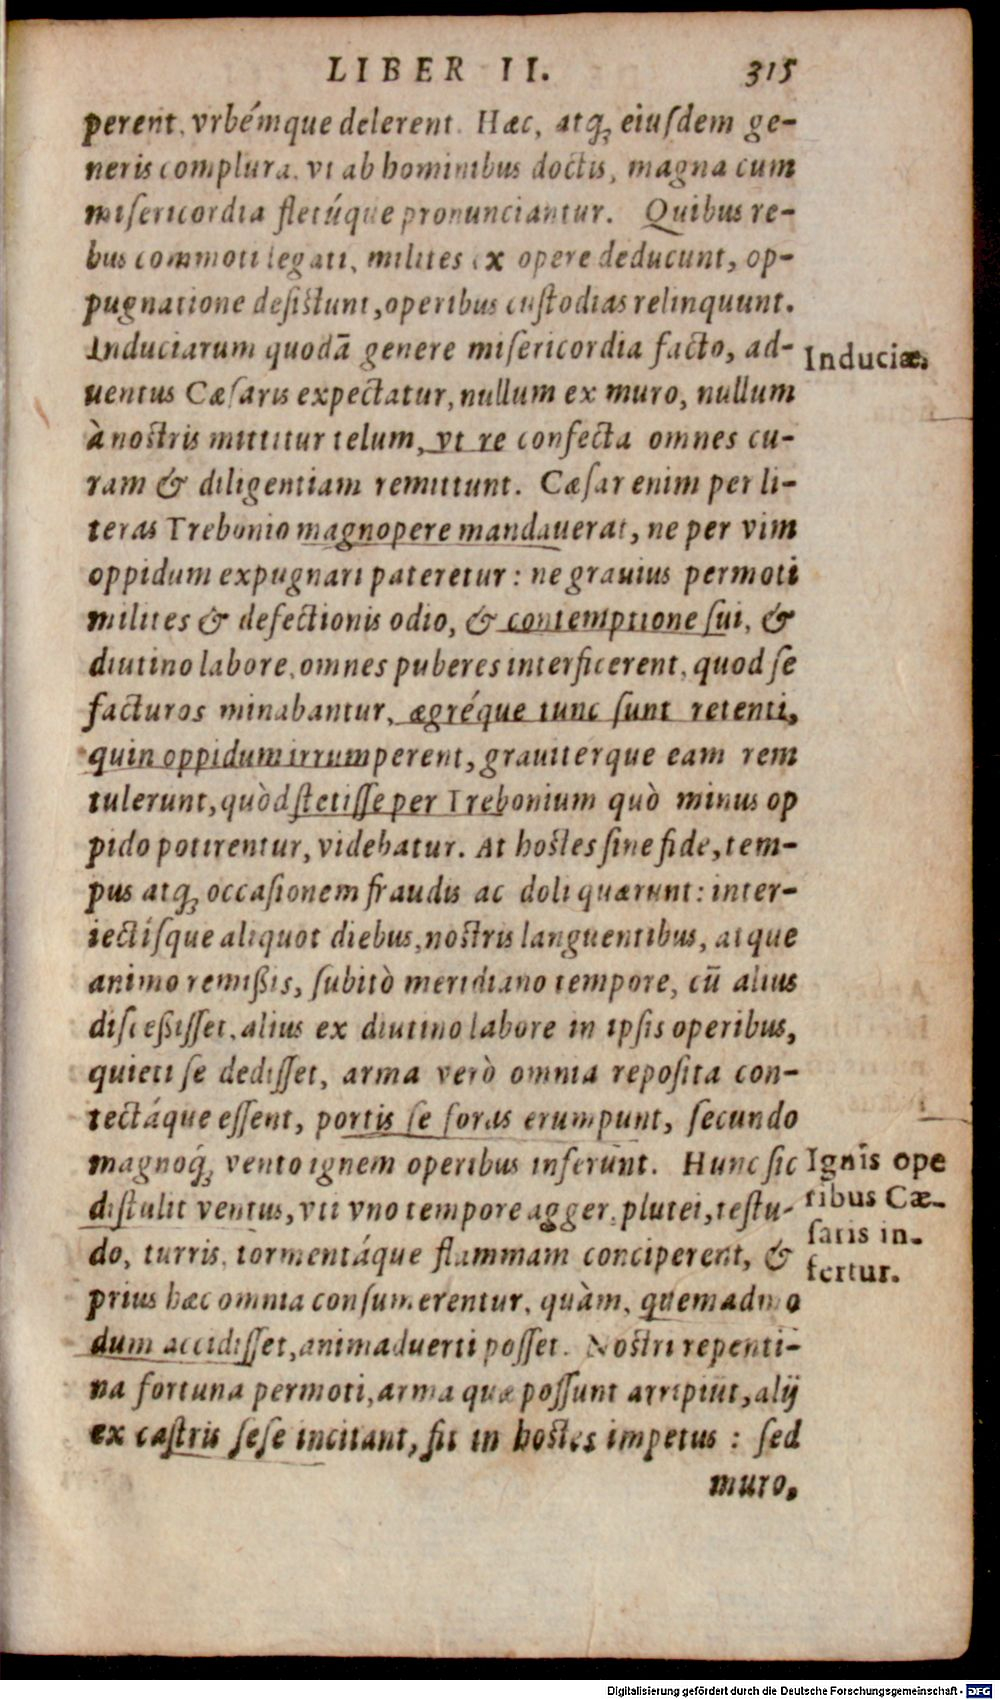 LIBER II. 315
perent, vrbémque delerent. Hæc, atq; eiuſdem ge-
neris complura, vt ab hominibus doctis, magna cum
miſericordia fletúque pronunciantur. Quibus re-
bus commoti legati, milites ex opere deducunt, op-
pugnatione deſiſtunt, operibus cuſtodias relinquunt.
Induciarum quodã genere miſericordia facto, ad-
uentus Cæſaris expectatur, nullum ex muro, nullum
à noſtris mittitur telum, vt re confecta omnes cu-
ram & diligentiam remittunt. Cæſar enim per li-
teras Trebonio magnopere mandauerat, ne per vim
oppidum expugnari pateretur: ne grauius permoti
milites & defectionis odio, & contemptione ſui, &
diutino labore, omnes puberes interficerent, quod ſe
facturos minabantur, ægréque tunc ſunt retenti,
quin oppidum irrumperent, grauiterque eam rem
tulerunt, quòd ſtetiſſe per Trebonium quò minus op
pido potirentur, videbatur. At hoſtes ſine fide, tem-
pus atq; occaſionem fraudis ac doli quærunt: inter-
iectíſque aliquot diebus, noſtris languentibus, atque
animo remißis, ſubitò meridiano tempore, cũ alius
diſceßiſſet, alius ex diutino labore in ipſis operibus,
quieti ſe dediſſet, arma verò omnia repoſita con-
tectáque eſſent, portis ſe foras erumpunt, ſecundo
magnoq́; vento ignem operibus inferunt. Hunc ſic
diſtulit ventus, vti vno tempore agger, plutei, teſtu-
do, turris, tormentáque flammam conciperent, &
prius hæc omnia conſumerentur, quàm, quemadmo
dum accidiſſet, animaduerti poſſet. Noſtri repenti-
na fortuna permoti, arma quæ poſſunt arripiũt, alij
ex caſtris ſeſe incitant, fit in hoſtes impetus: ſed
muro,
Induciæ.
Ignis ope
ribus Cæ-
ſaris in-
fertur.
Digitalisierung gefördert durch die Deutsche Forschungsgemeinschaft - DFG